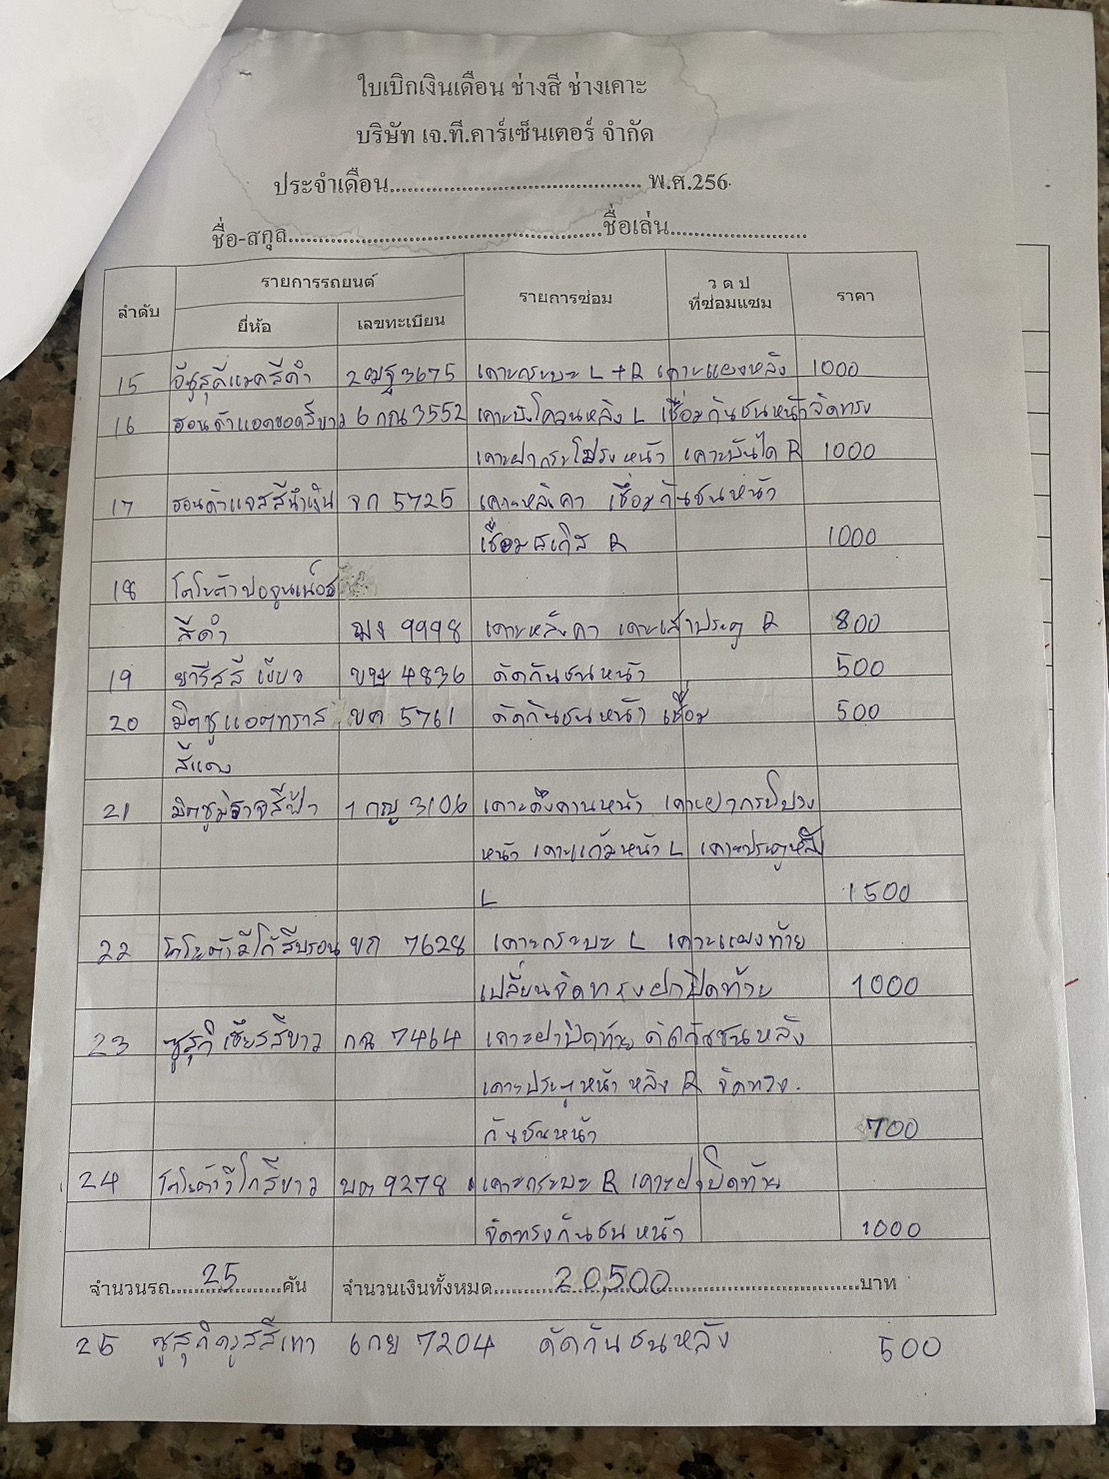 ใบเบิกเงินเดือน ช่างสี ช่างเคาะ
บริษัท เจ.ที.คาร์เซ็นเตอร์ จำกัด
ประจำเดือน.......................................... พ.ศ.256
ชื่อ-สกุล.....................................................ชื่อเล่น.......................
ลำดับ รายการรถยนต์ รายการซ่อม ว ด ป ที่ซ่อมแซม ราคา
ยี่ห้อ เลขทะเบียน
15 อีซูสุดีแมคสีดำ 2ฒฐ 3675 เคาะกระบะ L + R เคาะแผงหลัง 1000
16 ฮอนด้าแอคขอดสีขาว 6 กณ 3552 เคาะบังโคลนหลัง L เชื่อมกันชนหน้าจัดทรง
เคาะฝากระโปรงหน้า เคาะบันได R 1000
17 ฮอนด้าแจสสีน้ำเงิน จก 5725 เคาะหลังคา เชื่อมกันชนหน้า
เชื่อมสเกิส R 1000
18 โตโยต้าฟอจูนเน้อ
สีดำ ฆง 9998 เคาะหลังคา เคาะเสาประตู R 800
19 ยาริสสีเขียว ขษ 4836 ดัดกันชนหน้า 500
20 มิตซูแอตทราส ขค 5761 ดัดกันชนหน้า เชื่อม 500
สีแดง
21 มิตซูมิราจสีฟ้า 1 กญ 3106 เคาะดึงคานหน้า เคาะฝากระโปรง
หน้า เคาะแก้มหน้า L เคาะประตูหลัง
L 1500
22 โตโยต้าวีโก้สีบรอน ขก 7628 เคาะกระบะ L เคาะแผงท้าย
เปลี่ยนจัดทรงฝาปิดท้าย 1000
23 ซูสุกิเซียสสีขาว กฉ 7464 เคาะฝาปิดท้าย ดัดกันชนหลัง
เคาะประตูหน้า หลัง R จัดทรง
กันชนหน้า 700
24 โตโยต้าวีโก้สีขาว บต 9278 เคาะกระบะ R เคาะฝาปิดท้าย
จัดทรงกันชนหน้า 1000
จำนวนรถ......25..........คัน จำนวนเงินทั้งหมด..........20,500................................บาท
25 ซูสุกิ สีเทา 6 กย 7204 ดัดกันชนหลัง 500